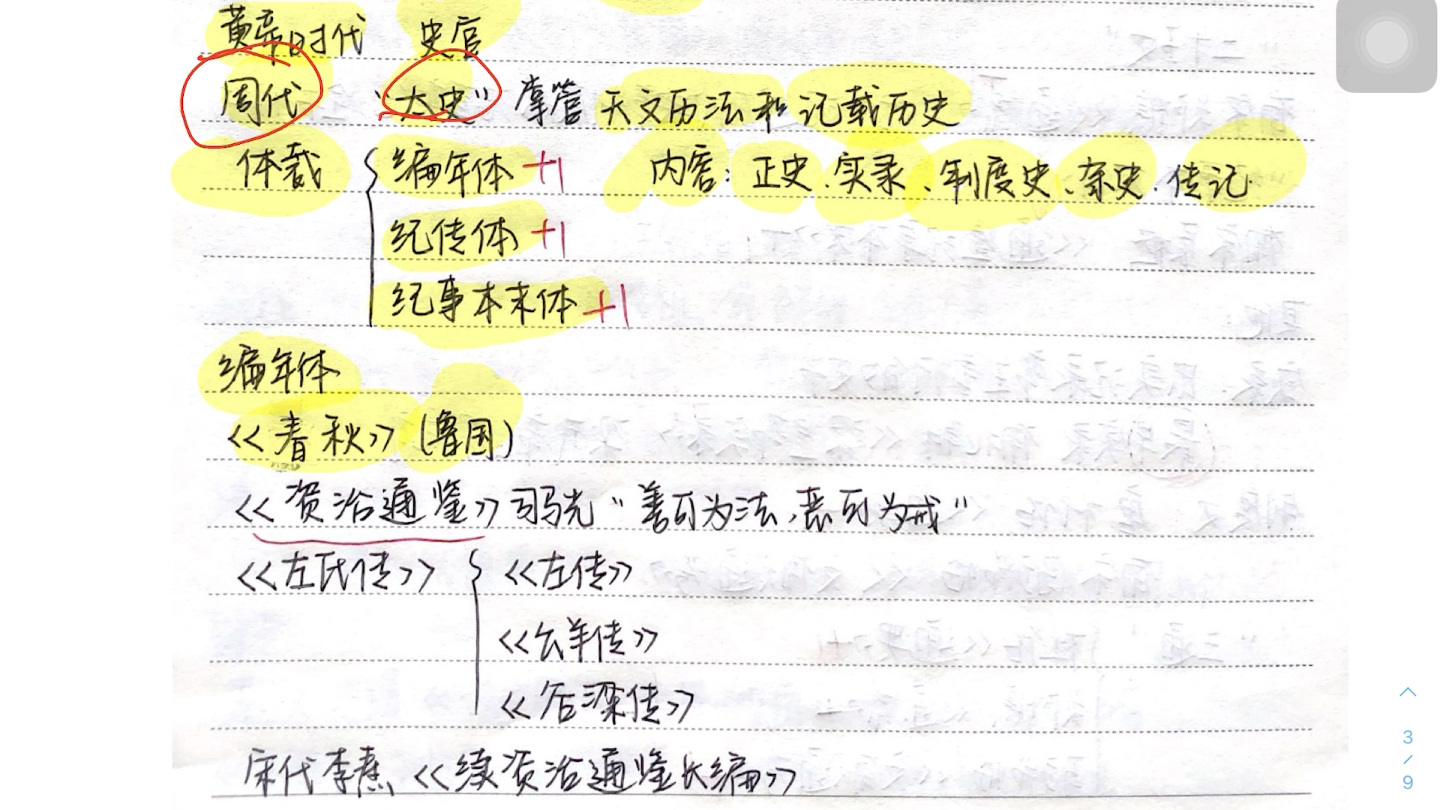 黄帝时代 史官
周代 "太史" 掌管 天文历法和 记载历史
体裁 { 编年体 +1 内容: 正史、实录、制度史、杂史、传记
纪传体 +1
纪事本末体 +1
编年体
<<春秋>> (鲁国)
<<资治通鉴>> 司马光 "善可为法,恶可为戒"
<<左氏传>> { <<左传>>
<<公羊传>>
<<谷梁传>>
宋代李焘 <<续资治通鉴长编>>
3
/
9